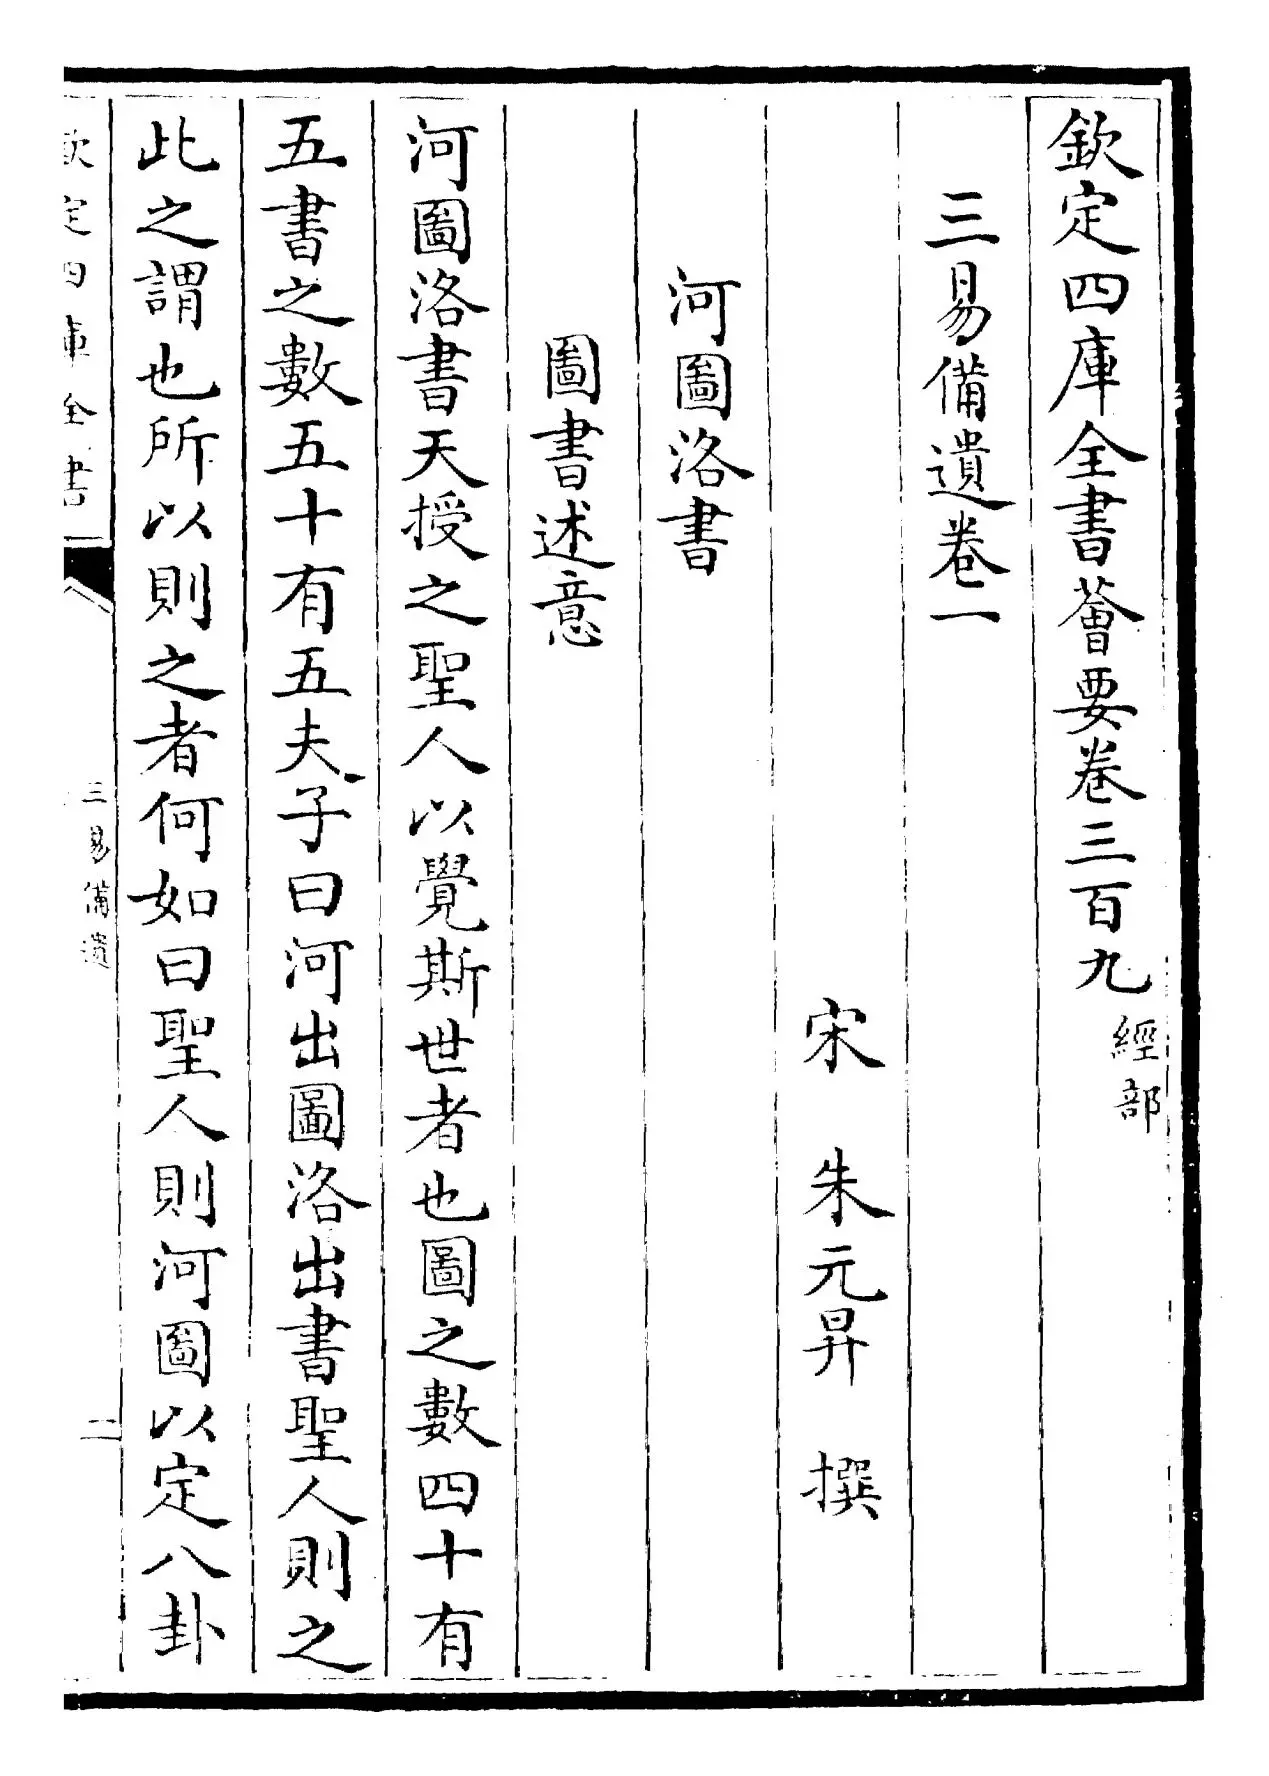 欽定四庫全書薈要卷三百九 經部
三易備遺卷一
宋 朱元昇 撰
河圖洛書
圖書述意
河圖洛書天授之聖人以覺斯世者也圖之數四十有
五書之數五十有五夫子曰河出圖洛出書聖人則之
此之謂也所以則之者何如曰聖人則河圖以定八卦
欽定四庫全書
三易備遺
二